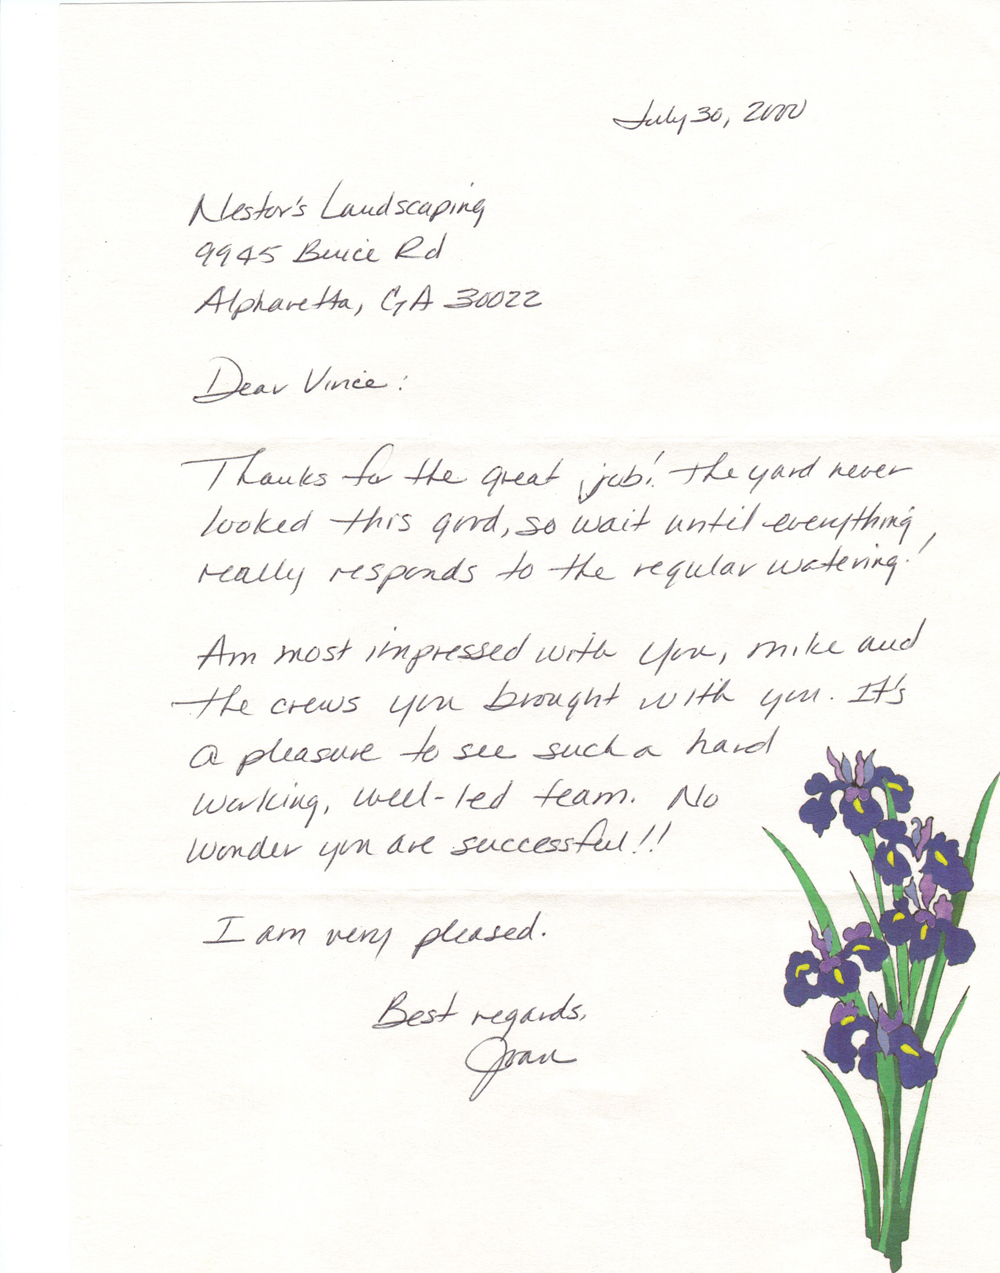 July 30, 2000
Nestor's Landscaping
9945 Buice Rd
Alpharetta, GA 30022
Dear Vince:
Thanks for the great job! The yard never
looked this good, so wait until everything
really responds to the regular watering!
Am most impressed with you, Mike and
the crews you brought with you. It's
a pleasure to see such a hard
working, well-led team. No
wonder you are successful!!
I am very pleased.
Best regards,
Joan